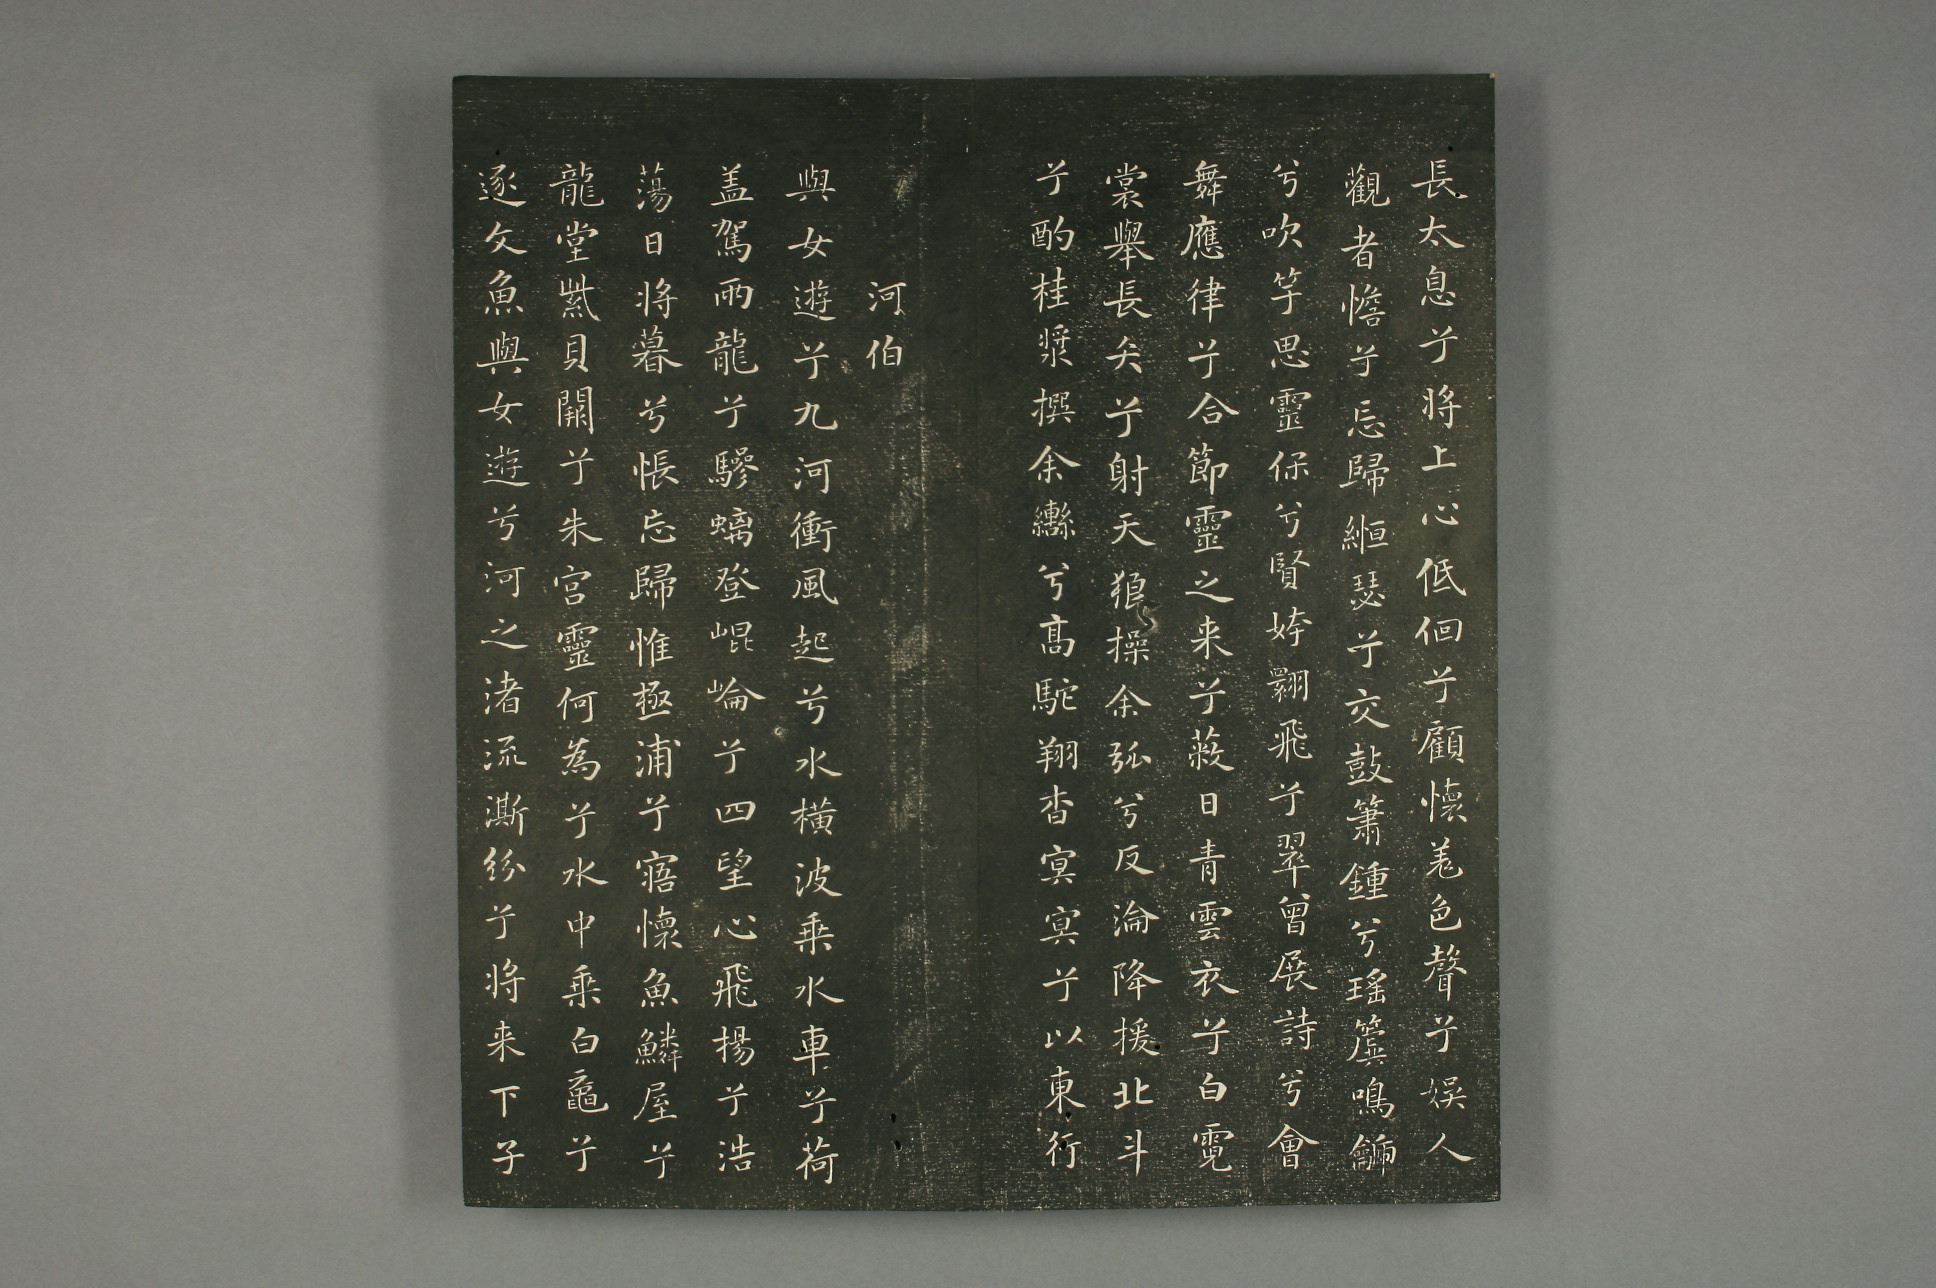 長太息兮将上心低佪兮顧懷羌色聲兮娛人
觀者憺兮忘歸縆瑟兮交鼓簫鍾兮瑶簴鳴龥
兮吹竽思靈保兮賢姱翾飛兮翠曾展詩兮會
舞應律兮合節靈之来兮蔽日青雲衣兮白霓
裳舉長矢兮射天狼操余弧兮反淪降援北斗
兮酌桂漿撰余轡兮高駝翔杳冥冥兮以東行
河伯
與女遊兮九河衝風起兮水橫波乗水車兮荷
盖駕兩龍兮驂螭登崐崘兮四望心飛揚兮浩
蕩日将暮兮悵忘歸惟極浦兮寤懷魚鱗屋兮
龍堂紫貝闕兮朱宮靈何為兮水中乗白黿兮
逐文魚與女遊兮河之渚流澌紛兮将来下子